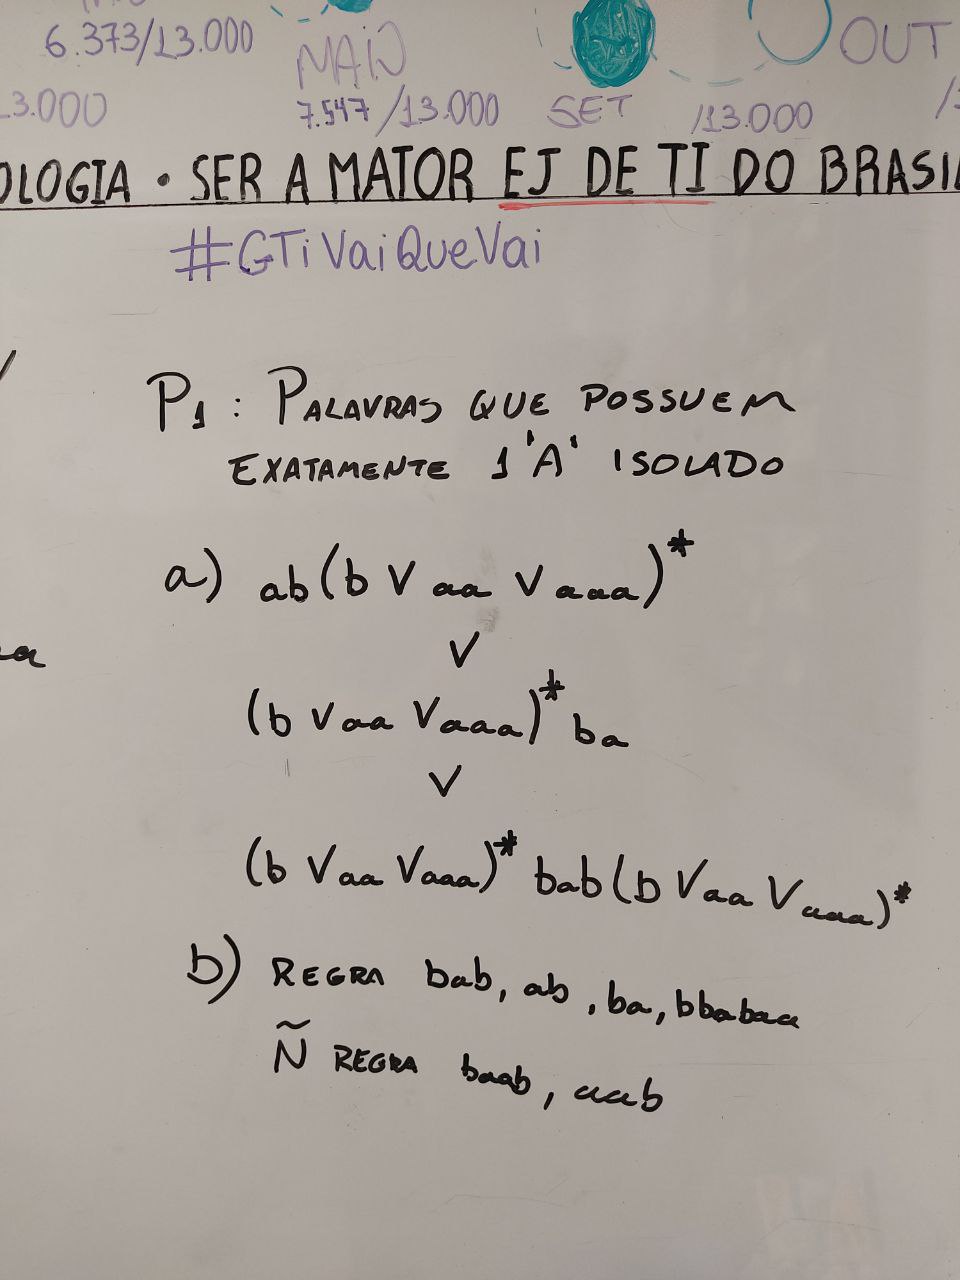 6.373/13.000
MAIO
OUT
3.000
7.547/13.000
SET
/13.000
OLOGIA • SER A MAIOR EJ DE TI DO BRASIL
#GTiVaiQueVai
P1: PALAVRAS QUE POSSUEM
EXATAMENTE 1 'A' ISOLADO
a) ab(b V aa V aaa)*
V
(b V aa V aaa)* ba
V
(b V aa V aaa)* bab (b V aa V aaa)*
b) REGRA bab, ab, ba, bbabaa
Ñ REGRA baab, aab